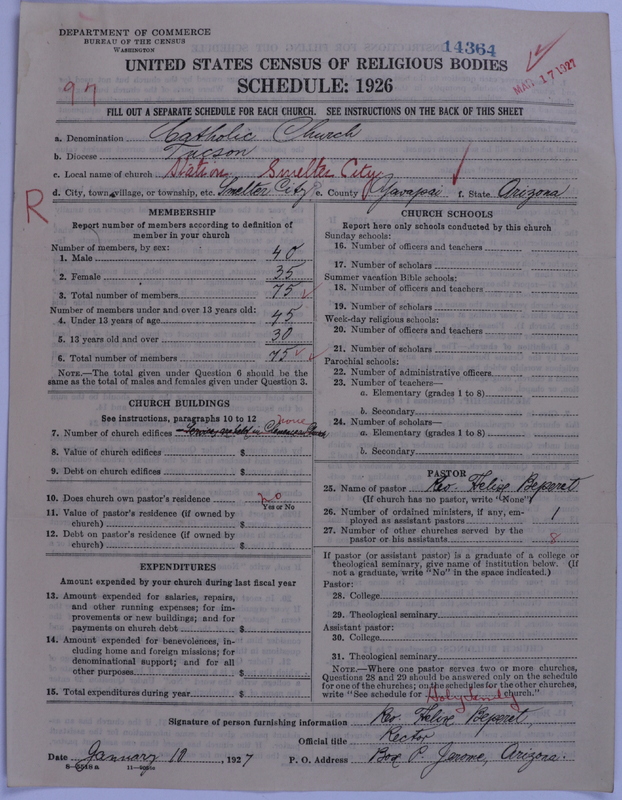 DEPARTMENT OF COMMERCE
BUREAU OF THE CENSUS
WASHINGTON
14364
MAR 17 1927
UNITED STATES CENSUS OF RELIGIOUS BODIES
SCHEDULE: 1926
97
FILL OUT A SEPARATE SCHEDULE FOR EACH CHURCH. SEE INSTRUCTIONS ON THE BACK OF THIS SHEET
a. Denomination Catholic Church
b. Diocese Tucson
c. Local name of church Station, Smelter City
d. City, town, village, or township, etc. Smelter City e. County Yavapai f. State Arizona
R
MEMBERSHIP
Report number of members according to definition of
member in your church
Number of members, by sex:
1. Male 40
2. Female 35
3. Total number of members 75
Number of members under and over 13 years old:
4. Under 13 years of age 45
5. 13 years old and over 30
6. Total number of members 75
NOTE.—The total given under Question 6 should be the
same as the total of males and females given under Question 3.
CHURCH BUILDINGS
See instructions, paragraphs 10 to 12
none
7. Number of church edifices
8. Value of church edifices $
9. Debt on church edifices $
10. Does church own pastor's residence no
Yes or No
11. Value of pastor's residence (if owned by
church) $
12. Debt on pastor's residence (if owned by
church) $
EXPENDITURES
Amount expended by your church during last fiscal year
13. Amount expended for salaries, repairs,
and other running expenses; for im-
provements or new buildings; and for
payments on church debt $
14. Amount expended for benevolences, in-
cluding home and foreign missions; for
denominational support; and for all
other purposes $
15. Total expenditures during year $
CHURCH SCHOOLS
Report here only schools conducted by this church
Sunday schools:
16. Number of officers and teachers
17. Number of scholars
Summer vacation Bible schools:
18. Number of officers and teachers
19. Number of scholars
Week-day religious schools:
20. Number of officers and teachers
21. Number of scholars
Parochial schools:
22. Number of administrative officers
23. Number of teachers—
a. Elementary (grades 1 to 8)
b. Secondary
24. Number of scholars—
a. Elementary (grades 1 to 8)
b. Secondary
PASTOR
25. Name of pastor Rev. Felix Beperet
(If church has no pastor, write "None")
26. Number of ordained ministers, if any, em-
ployed as assistant pastors 1
27. Number of other churches served by the
pastor or his assistants 8
If pastor (or assistant pastor) is a graduate of a college or
theological seminary, give name of institution below. (If
not a graduate, write "No" in the space indicated.)
Pastor:
28. College
29. Theological seminary
Assistant pastor:
30. College
31. Theological seminary
NOTE.—Where one pastor serves two or more churches,
Questions 28 and 29 should be answered only on the schedule
for one of the churches; on the schedules for the other churches,
write "See schedule for Holy Family church."
Signature of person furnishing information Rev. Felix Beperet,
Official title Rector
Date January 10, 1927 P. O. Address Box P. Jerome, Arizona.
8—5518a 11—